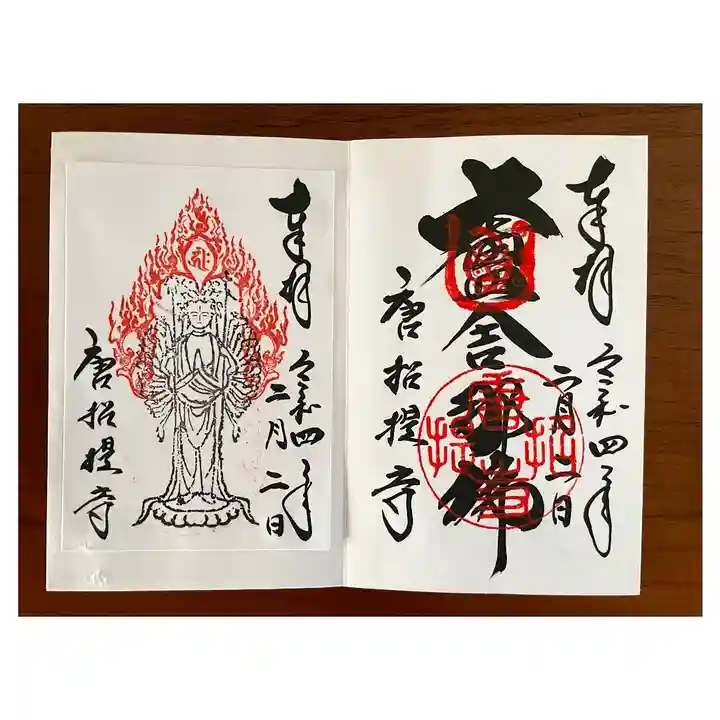 奉拝
令和四年
二月二日
盧舎那佛
唐招提寺
唐招提寺
奉拝
令和四年
二月二日
唐招提寺